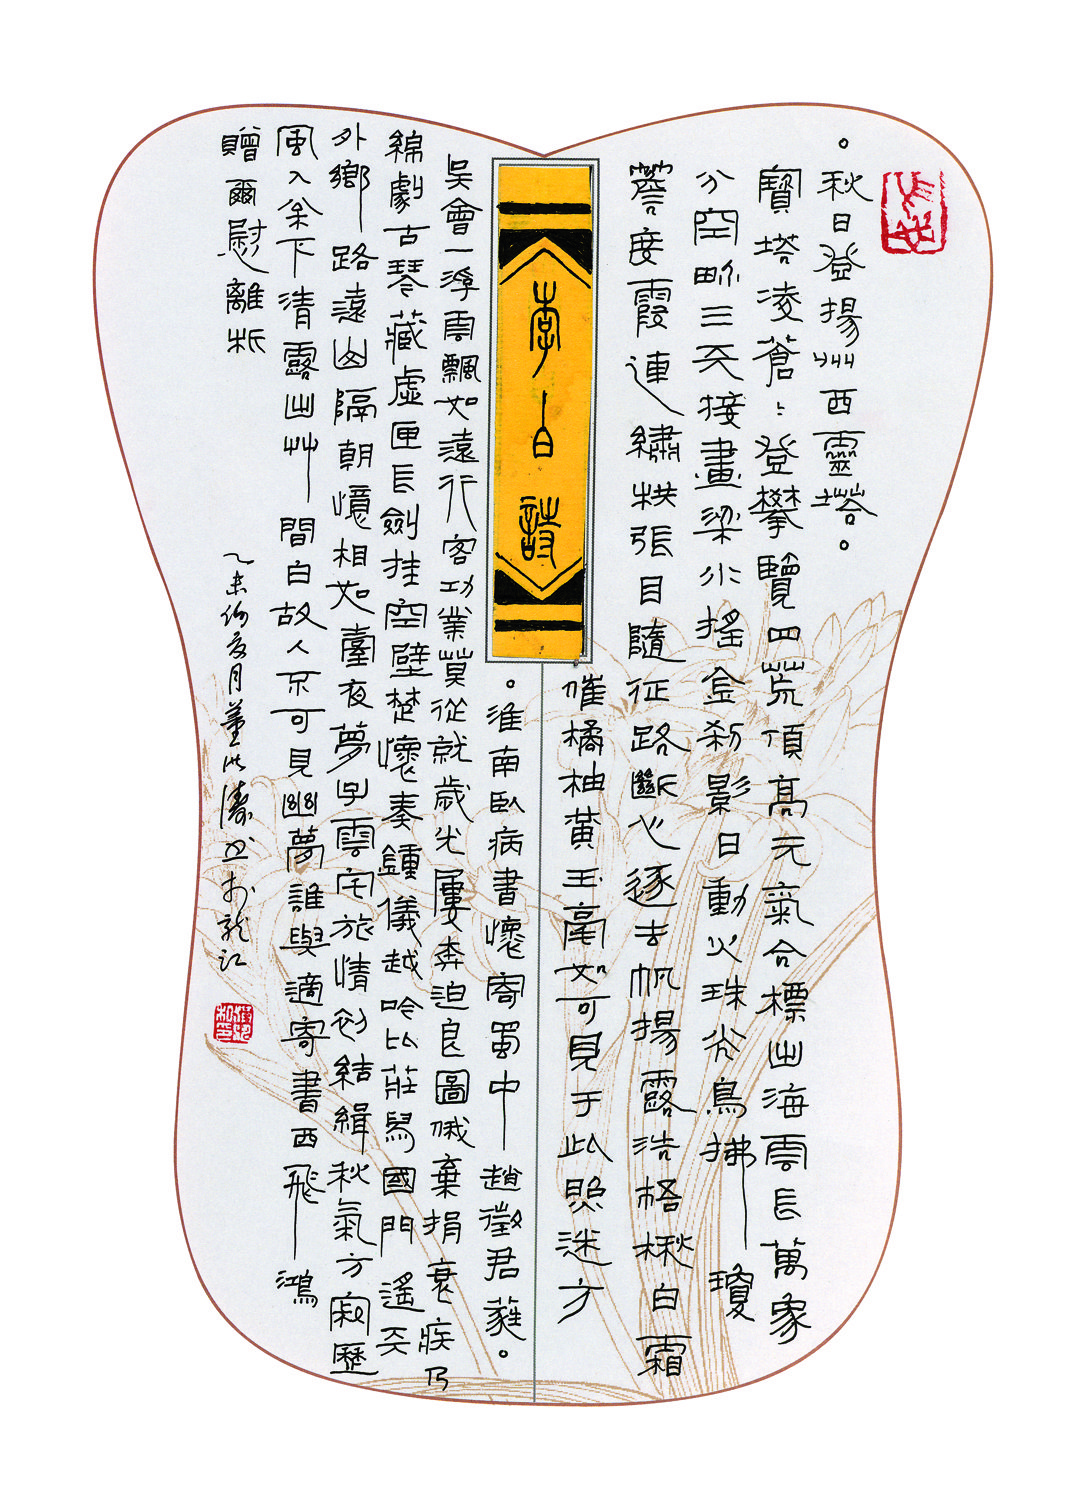 。秋日登揚州西靈塔。
寶塔凌蒼〻登攀覽四荒頂高元氣合標出海雲長萬象
分空畍三天接畫梁水搖金剎影日動火珠光鳥拂瓊
簷度霞連繡栱張目隨征路斷心逐去帆揚露浩梧楸白霜
催橘柚黃玉毫如可見于此照迷方
李白詩
。淮南臥病書懷寄蜀中趙徵君蕤。
吳會一浮雲飄如遠行客功業莫從就歲光屢奔迫良圖俄棄捐衰疾乃
綿劇古琴藏虛匣長劍挂空壁楚懷奏鍾儀越吟比莊舄國門遙天
外鄉路遠山隔朝憶相如臺夜夢子雲宅旅情初結緝秋氣方寂歷
風入松下清露出艸間白故人不可見幽夢誰與適寄書西飛鴻
贈爾慰離析
乙未仲夏月董濤书於龍江